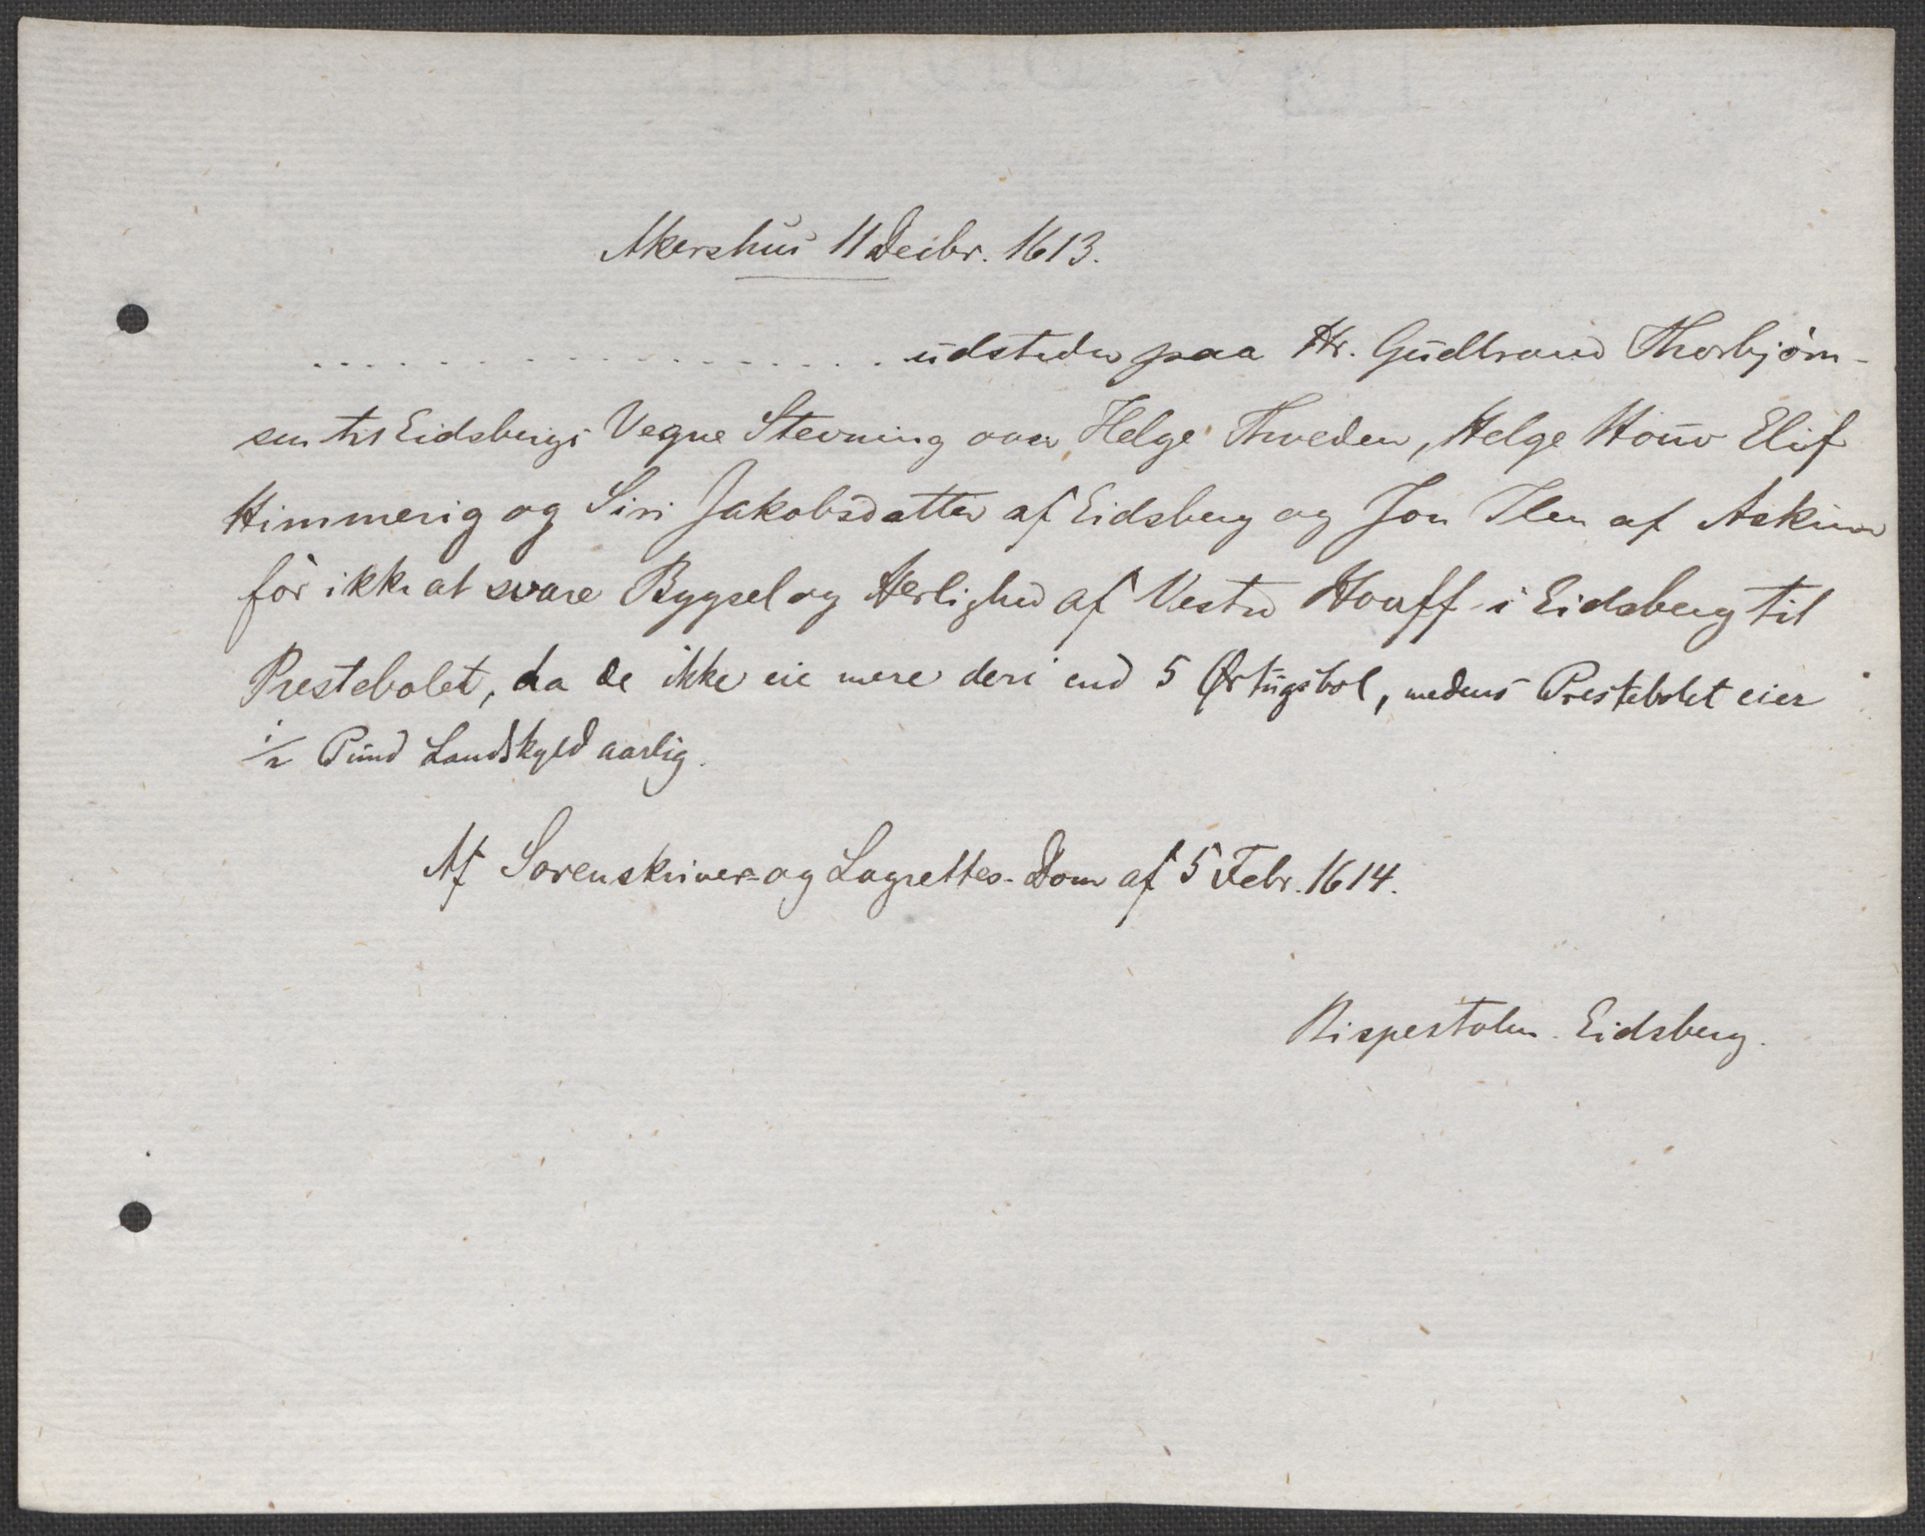 Akershus 11 Decbr. 1613.
. . . . . . . . . . . . . . . . . . . . udsteder paa Hr. Gudbrand Thorbjørn-
sen til Eidsbergs Vegne Stevning over Helge Thveden, Helge Houv Elif
Himmerig og Siri Jakobsdatter af Eidsberg og Jon Ilen af Askim
for ikke at svare Bygsel og Herlighed af Vestre Houff i Eidsberg til
Prestebolet, da de ikke eie mere deri end 5 Ørtugsbol, medens Prestebolet eier
1/2 Pund Landskyld aarlig.
Af Sorenskriver- og Lagrettes-Dom af 5 Febr. 1614.
Bispestolen. Eidsberg.